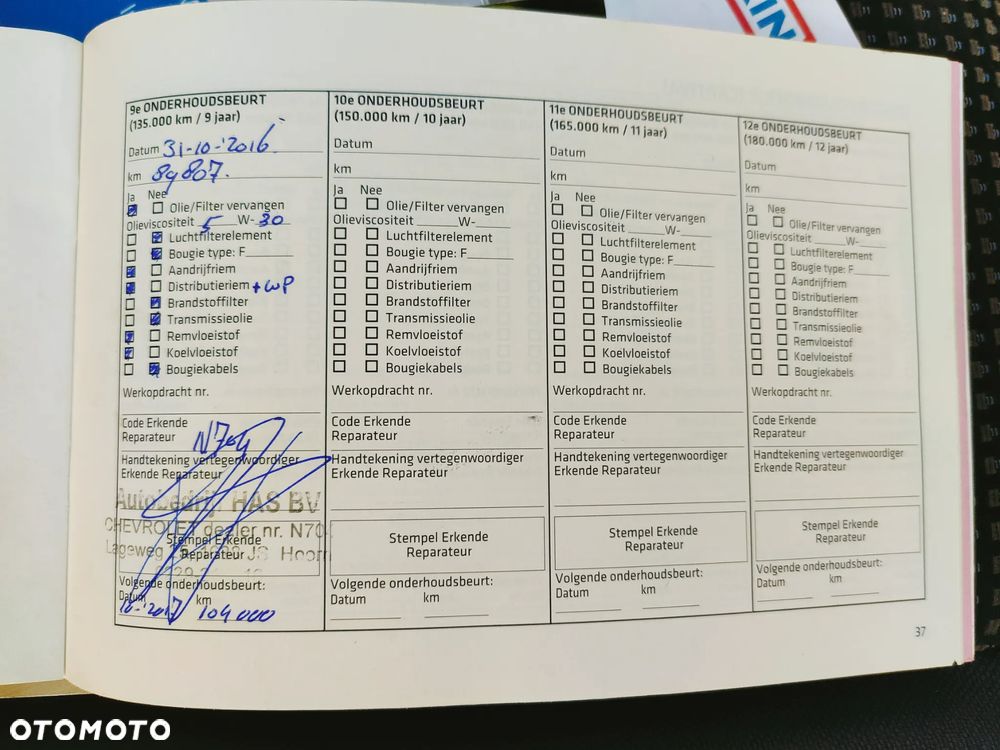 KIN
9e ONDERHOUDSBEURT
(135.000 km / 9 jaar)
Datum 31-10-'2016
km 89807.
Ja Nee
Olie/Filter vervangen
Olieviscositeit 5 W- 30
Luchtfilterelement
Bougie type: F
Aandrijfriem
Distributieriem + WP
Brandstoffilter
Transmissieolie
Remvloeistof
Koelvloeistof
Bougiekabels
Werkopdracht nr.
Code Erkende
Reparateur N704
Handtekening vertegenwoordiger
Erkende Reparateur
Autobedrijf HAS BV
CHEVROLET dealer nr. N70
Stempel Erkende
Lageweg JS Hoorn
Reparateur
Volgende onderhoudsbeurt:
Datum km
10-'2017 104000
10e ONDERHOUDSBEURT
(150.000 km / 10 jaar)
Datum
km
Ja Nee
Olie/Filter vervangen
Olieviscositeit W-
Luchtfilterelement
Bougie type: F
Aandrijfriem
Distributieriem
Brandstoffilter
Transmissieolie
Remvloeistof
Koelvloeistof
Bougiekabels
Werkopdracht nr.
Code Erkende
Reparateur
Handtekening vertegenwoordiger
Erkende Reparateur
Stempel Erkende
Reparateur
Volgende onderhoudsbeurt:
Datum km
11e ONDERHOUDSBEURT
(165.000 km / 11 jaar)
Datum
km
Ja Nee
Olie/Filter vervangen
Olieviscositeit W-
Luchtfilterelement
Bougie type: F
Aandrijfriem
Distributieriem
Brandstoffilter
Transmissieolie
Remvloeistof
Koelvloeistof
Bougiekabels
Werkopdracht nr.
Code Erkende
Reparateur
Handtekening vertegenwoordiger
Erkende Reparateur
Stempel Erkende
Reparateur
Volgende onderhoudsbeurt:
Datum km
12e ONDERHOUDSBEURT
(180.000 km / 12 jaar)
Datum
km
Ja Nee
Olie/Filter vervangen
Olieviscositeit W-
Luchtfilterelement
Bougie type: F
Aandrijfriem
Distributieriem
Brandstoffilter
Transmissieolie
Remvloeistof
Koelvloeistof
Bougiekabels
Werkopdracht nr.
Code Erkende
Reparateur
Handtekening vertegenwoordiger
Erkende Reparateur
Stempel Erkende
Reparateur
Volgende onderhoudsbeurt:
Datum km
37
OTOMOTO